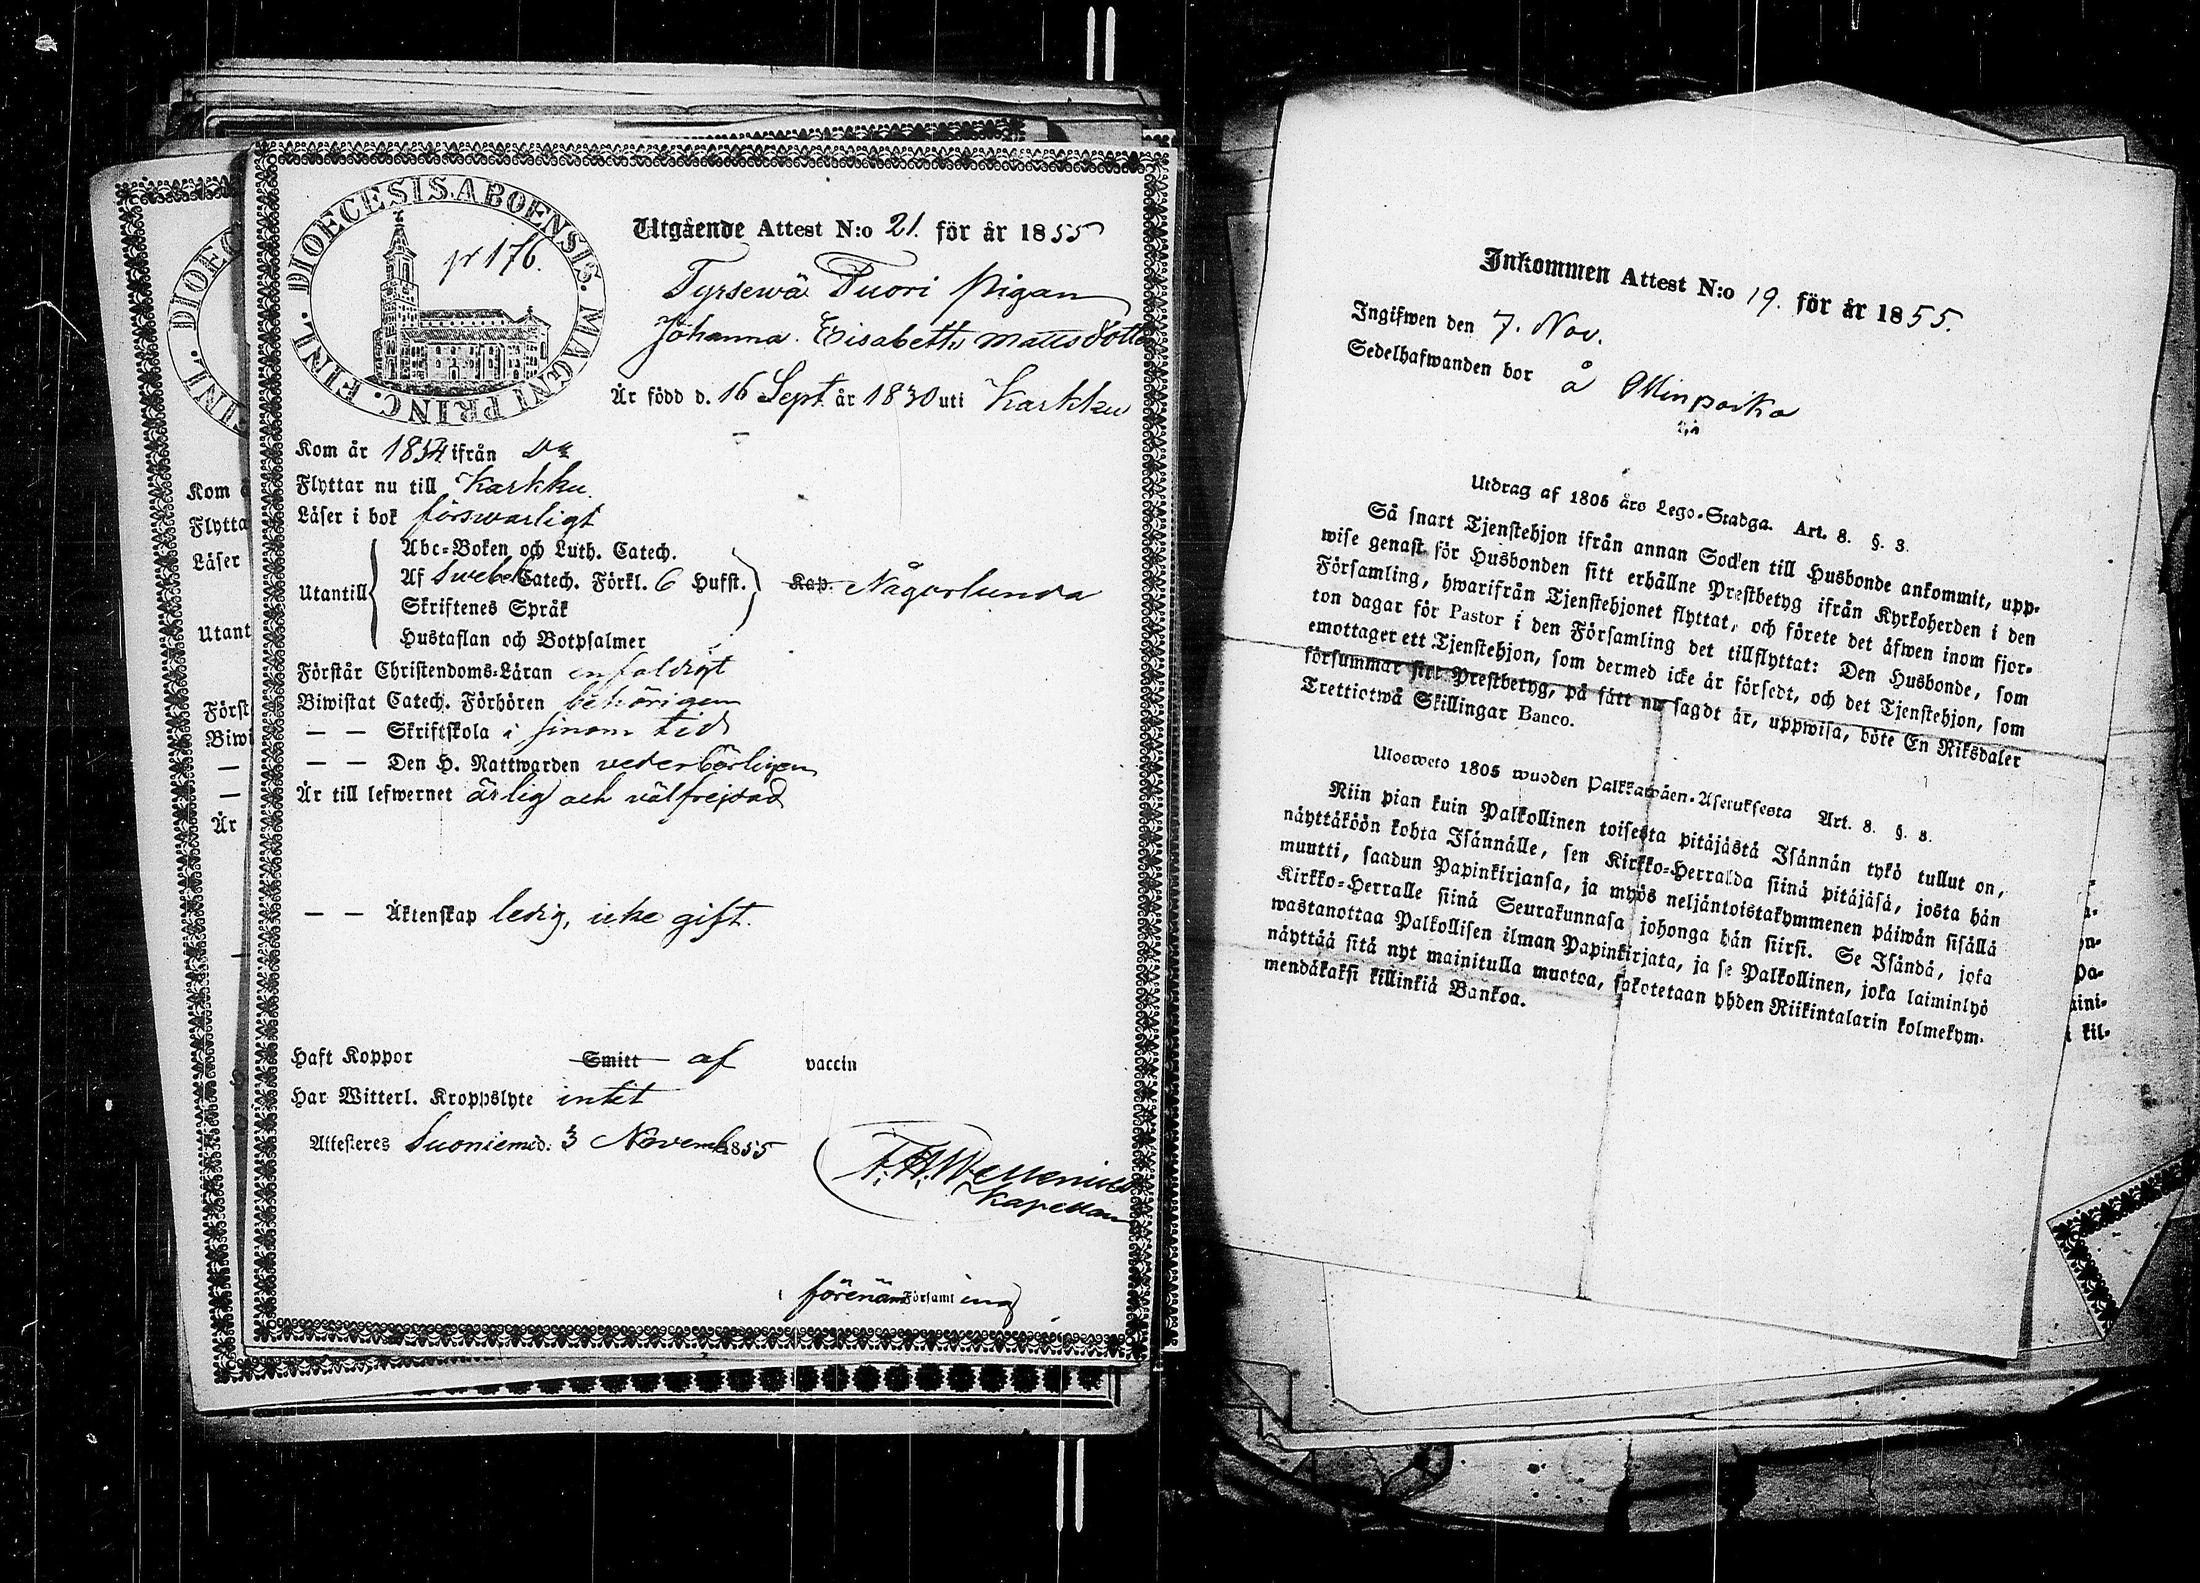 DIOECESIS. ABOENSIS. MAGNI PRINC. FINL.
pr 176.
Utgående Attest N:o 21. för år 1855
Tyrsewä Tuori pigan
Johanna Elisabeth Mattsdotter
Är född d. 16 Sept. år 1830 uti Karkku
Kom år 1854 ifrån Do
Flyttar nu till Karkku.
Läser i bok förswarligt
Utantill
Abc-Boken och Luth. Catech.
Af Swebel Catech. Förkl. 6 Hufst.
Skriftenes Språk
Hustaflan och Botpsalmer
Kap. Någorlunda
Förstår Christendoms-Läran enfaldigt
Biwistat Catech. Förhören behörigen
— — Skriftskola i sinom tid
— — Den H. Nattwarden vederbörligen
Är till lefwernet ärlig och välfrejdad
— — Äktenskap ledig, icke gift.
Haft Koppor Smitt af vaccin
Har Witterl. Kroppslyte intet
Attesteres Suoniemi d. 3 Novemb. 1855
Kapellan
i förenäm Församling
Inkommen Attest N:o 19. för år 1855.
Ingifwen den 7. Nov.
Sedelhafwanden bor å
Utdrag af 1805 års Lego-Stadga. Art. 8. §. 3.
Så snart Tjenstehjon ifrån annan Socken till Husbonde ankommit, upp-
wise genast för Husbonden sitt erhållne Prestbetyg ifrån Kyrkoherden i den
Församling, hwarifrån Tjenstehjonet flyttat, och förete det äfwen inom fjor-
ton dagar för Pastor i den Församling det tillflyttat: Den Husbonde, som
emottager ett Tjenstehjon, som dermed icke är försedt, och det Tjenstehjon, som
försummar sitt Prestbetyg, på sätt nu sagdt är, uppwisa, böte En Riksdaler
Trettiotwå Skillingar Banco.
Ulosweto 1805 wuoden Palkkawäen-Aseruksesta Art. 8. §. 3.
Niin pian kuin Palkollinen toisesta pitäjästä Isännän tykö tullut on,
näyttäköön kohta Isännälle, sen Kirkko-Herralda siinä pitäjäsä, josta hän
muutti, saadun Papinkirjansa, ja myös neljäntoistakymmenen päiwän sisällä
Kirkko-Herralle siinä Seurakunnasa johonga hän siirsi. Se Isändä, joka
wastanottaa Palkollisen ilman Papinkirjata, ja se Palkollinen, joka laiminlyö
näyttää sitä nyt mainitulla muotoa, sakotetaan yhden Riikintalarin kolmekym-
mendäkaksi killinkiä Bankoa.